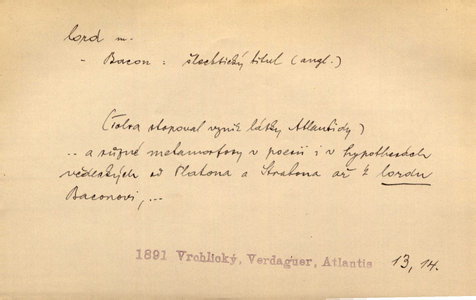 lord m.
- Bacon : šlechtický titul (angl.)
(Tolra stopoval vznik látky Atlantidy)
.. a různé metamorfosy v poesii i v hypothesách
vědeckých od Platona a Strabona až k lordu
Baconovi, ...
1891 Vrchlický, Verdaguer, Atlantis 13, 14.